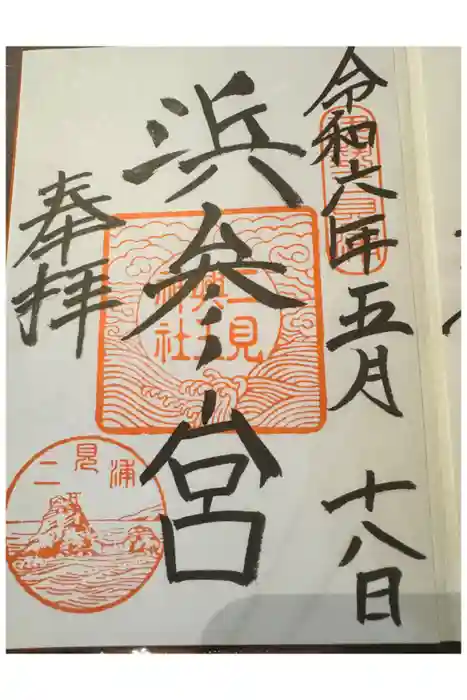 令和六年五月十八日
浜参宮
奉拝
二見興玉神社
二見浦